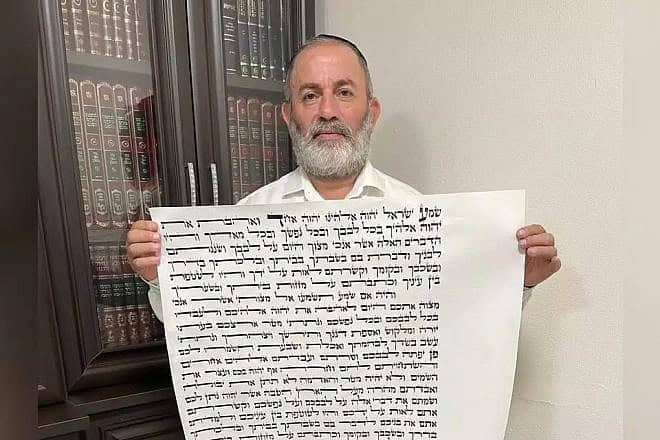 שמע ישראל יהוה אלהינו יהוה אחד ואהבת את
יהוה אלהיך בכל לבבך ובכל נפשך ובכל מאדך והיו
הדברים האלה אשר אנכי מצוך היום על לבבך ושננתם
לבניך ודברת בם בשבתך בביתך ובלכתך בדרך
ובשכבך ובקומך וקשרתם לאות על ידך והיו לטטפת
בין עיניך וכתבתם על מזזות ביתך ובשעריך
והיה אם שמע תשמעו אל מצותי אשר אנכי
מצוה אתכם היום לאהבה את יהוה אלהיכם ולעבדו
בכל לבבכם ובכל נפשכם ונתתי מטר ארצכם בעתו
יורה ומלקוש ואספת דגנך ותירשך ויצהרך ונתתי
עשב בשדך לבהמתך ואכלת ושבעת השמרו לכם
פן יפתה לבבכם וסרתם ועבדתם אלהים אחרים
והשתחויתם להם וחרה אף יהוה בכם ועצר את
השמים ולא יהיה מטר והאדמה לא תתן את יבולה
ואבדתם מהרה מעל הארץ הטבה אשר יהוה נתן לכם
ושמתם את דברי אלה על לבבכם ועל נפשכם וקשרתם
אתם לאות על ידכם והיו לטוטפת בין עיניכם ולמדתם
אתם את בניכם לדבר בם בשבתך בביתך ובלכתך
בדרך ובשכבך ובקומך וכתבתם על מזוזות